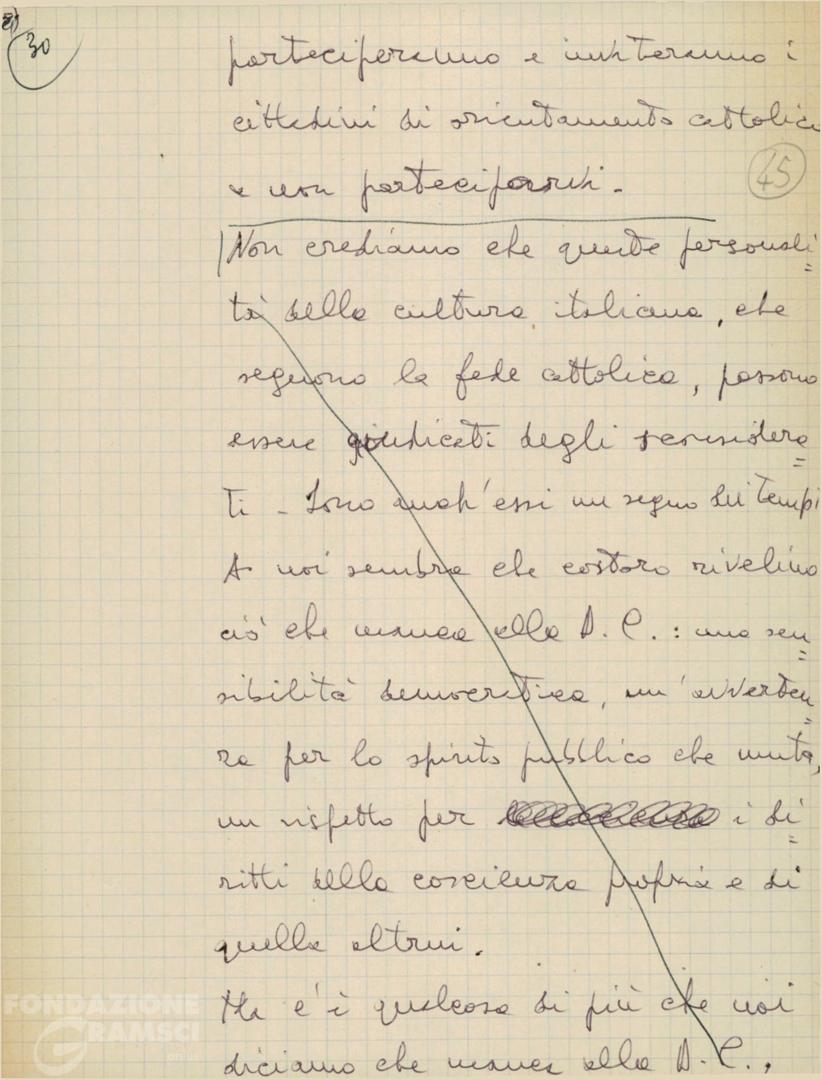 30
parteciperanno e inviteranno i
cittadini di orientamento cattolico
a non parteciparvi.
45
Non crediamo che queste personali=
tà della cultura italiana, che
seguono la fede cattolica, possano
essere giudicati degli sconsidera=
ti - Sono anch'essi un segno dei tempi
A noi sembra che costoro rivelino
ciò che manca alla D.C.: una sen=
sibilità democratica, un'avverten=
za per lo spirito pubblico che muta,
un rispetto per i di=
ritti della coscienza propria e di
quella altrui.
Ma c'è qualcosa di più che noi
diciamo che manca alla D.C.,
FONDAZIONE
GRAMSCI